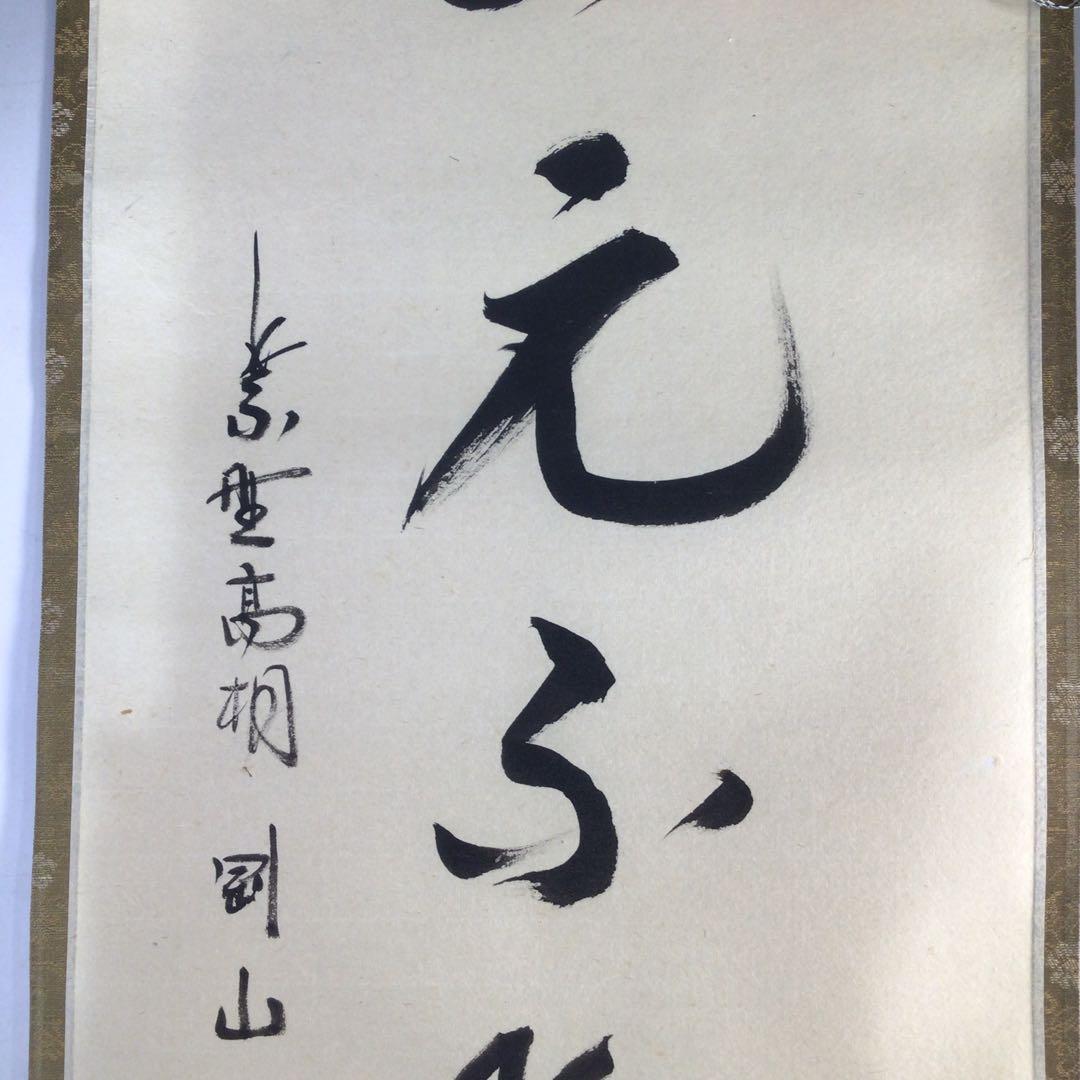 元不
紫野高桐 剛山